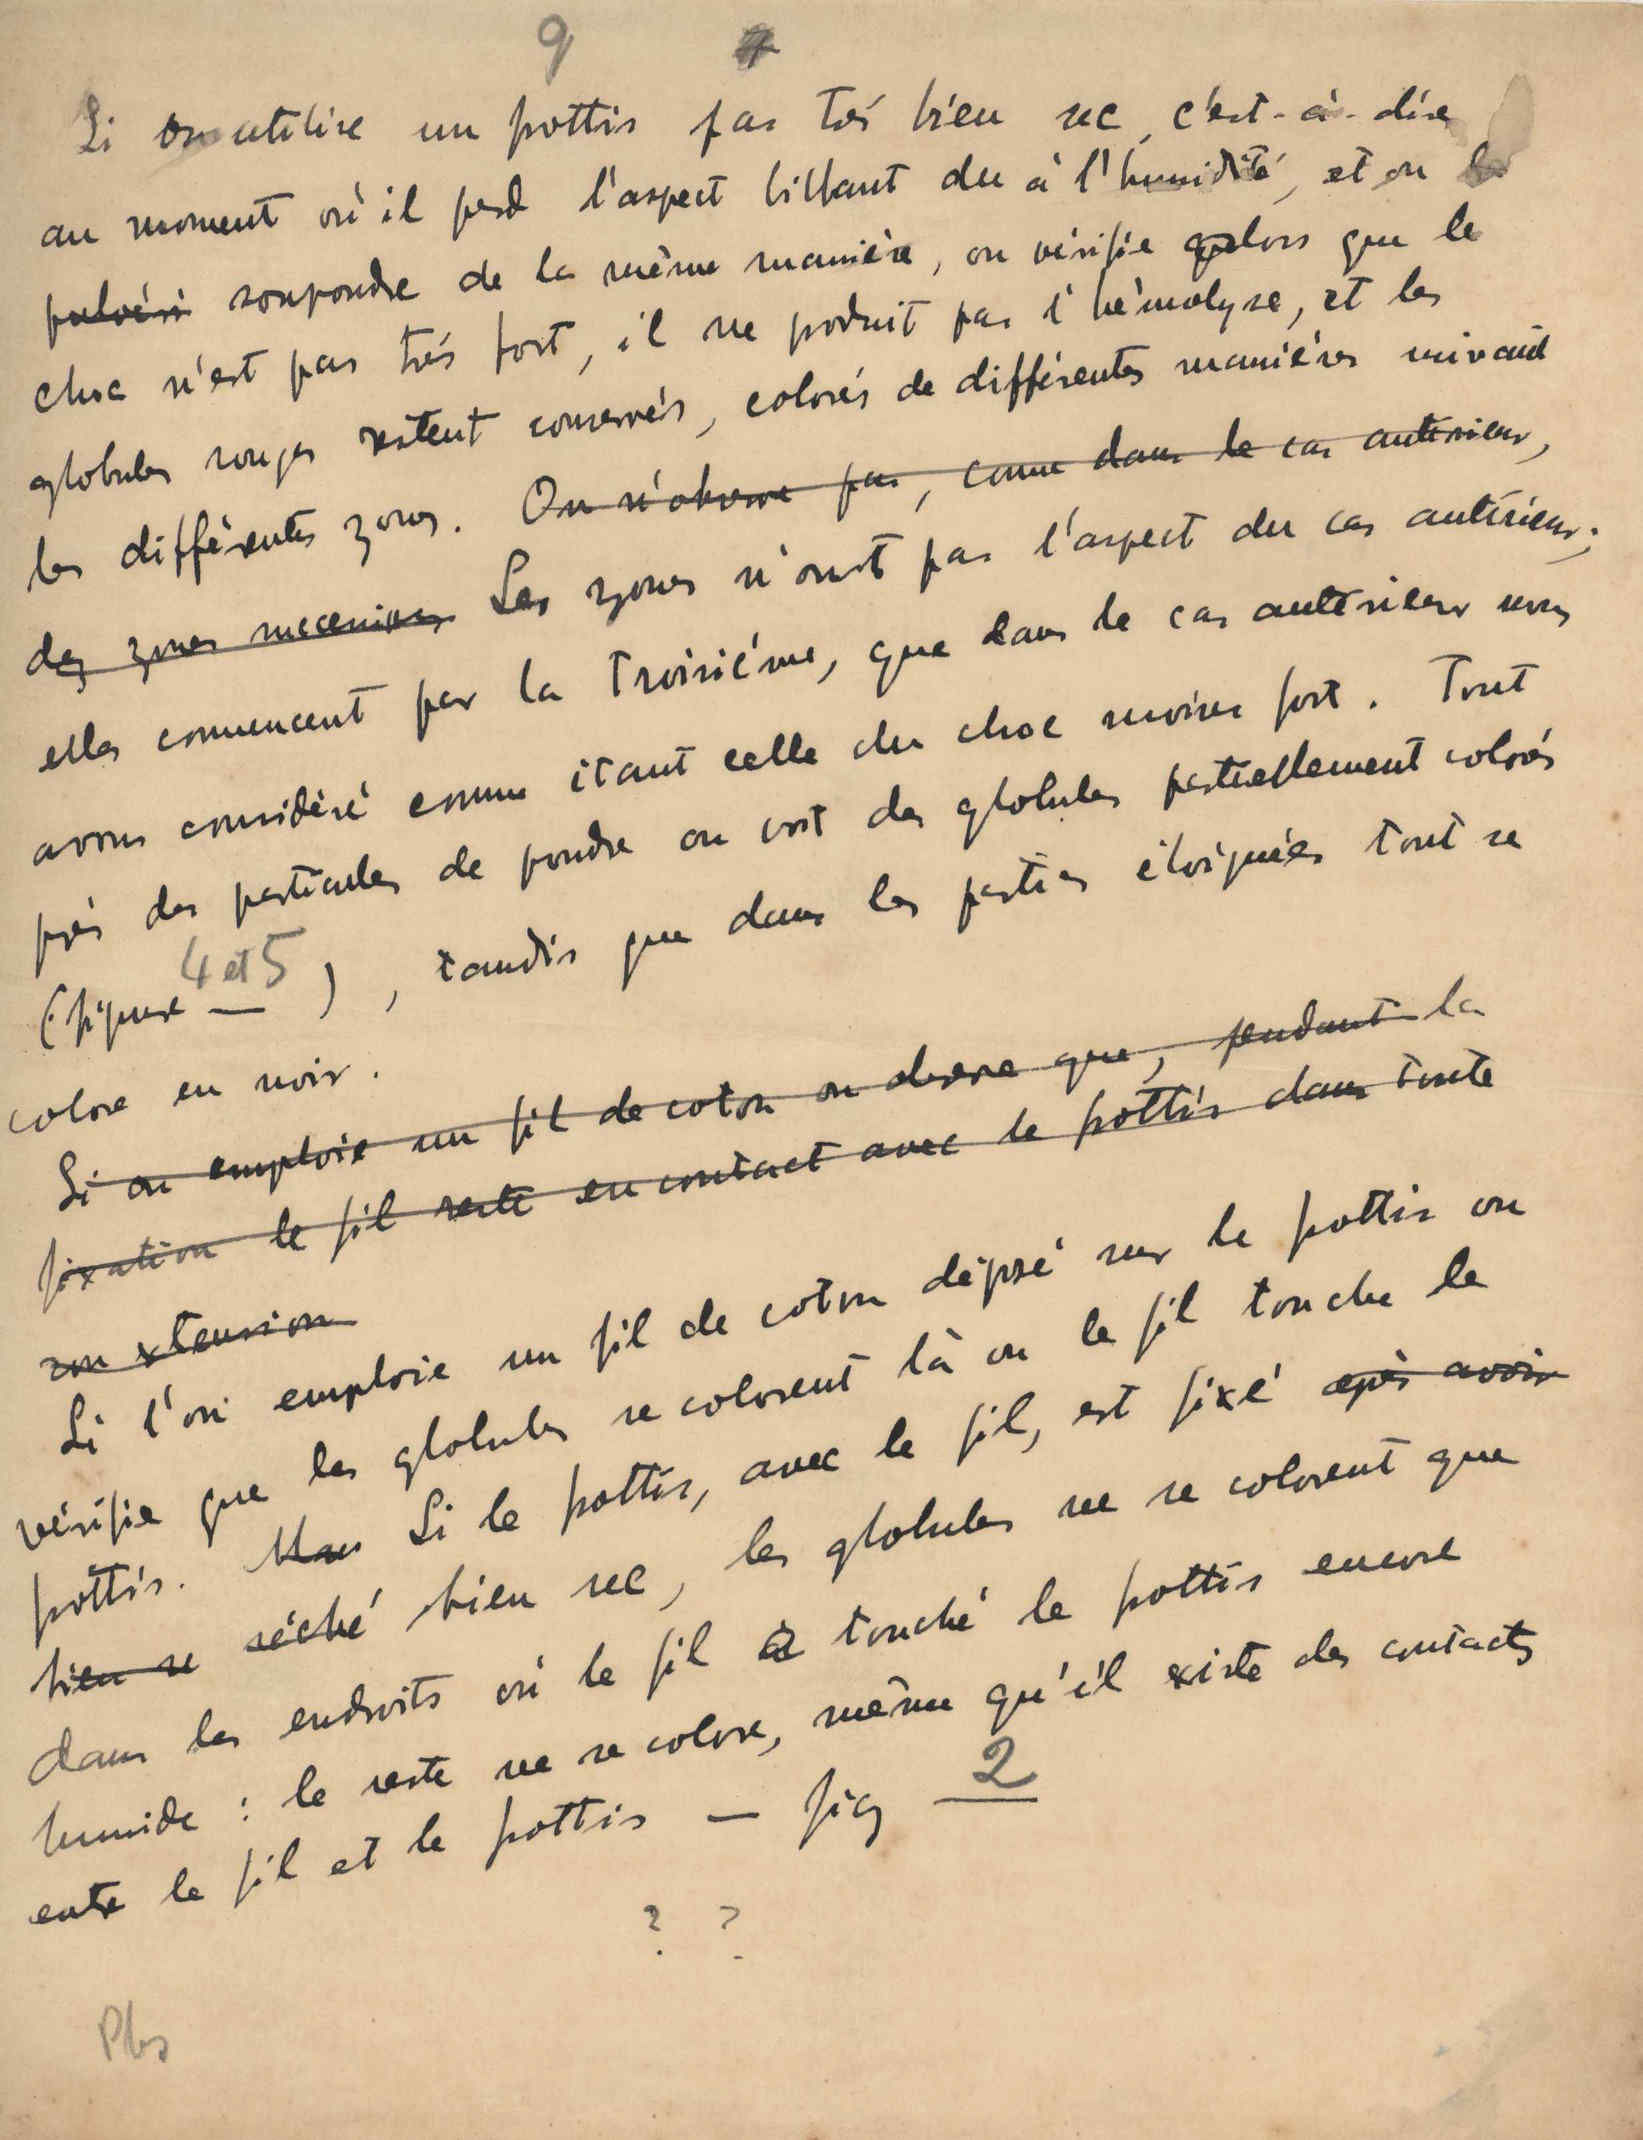 9
Si on utilise un frottis pas très bien sec, c'est-à-dire
au moment où il perd l'aspect brillant du à l'humidité, et on le
pulvéri soupoudre de la même manière, on vérifie alors que le
choc n'est pas trés fort, il ne produit pas l'hémolyse, et les
globules rouges restent conservés, colorés de différentes maniéres suivant
les différentes zones. On n'observe pas, comme dans le cas anterieur,
des zones successives Les zones n'ont pas l'aspect du cas antérieur;
elles commencent par la Troisiéme, que dans le cas antérieur nous
avons considéré comme étant celle du choc moins fort. Tout
près des particules de poudre on voit des globules partiellement colorés
(figure 4 et 5), tandis que dans les parties éloignées tout se
colore en noir.
Si on emploie un fil de coton on observe que, pendant la
fixation le fil reste en contact avec le frottis dans toute
son extension
Si l'on emploie un fil de coton déposé sur le frottis on
vérifie que les globules se colorent là ou le fil touche le
frottis. Mais Si le frottis, avec le fil, est fixé après avoir
bien se séché bien sec, les globules ne se colorent que
dans les endroits où le fil a touché le frottis encore
humide : le reste ne se colore, même qu'il existe des contacts
entre le fil et le frottis — fig 2
? ?